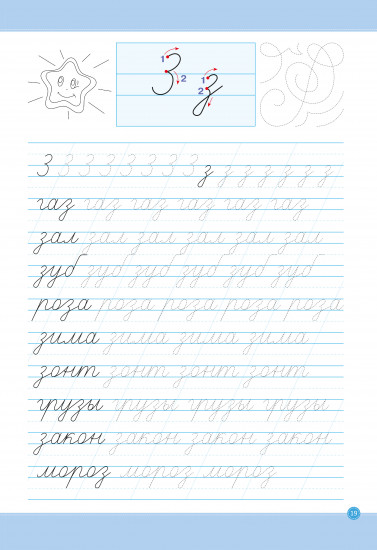 1 З 2 1 2 з
З З З З З З З З з з з з з з з
газ газ газ газ газ газ
зал зал зал зал зал зал
зуб зуб зуб зуб зуб зуб
роза роза роза роза роза
зима зима зима зима
зонт зонт зонт зонт
грузы грузы грузы грузы
закон закон закон закон
мороз мороз мороз
19